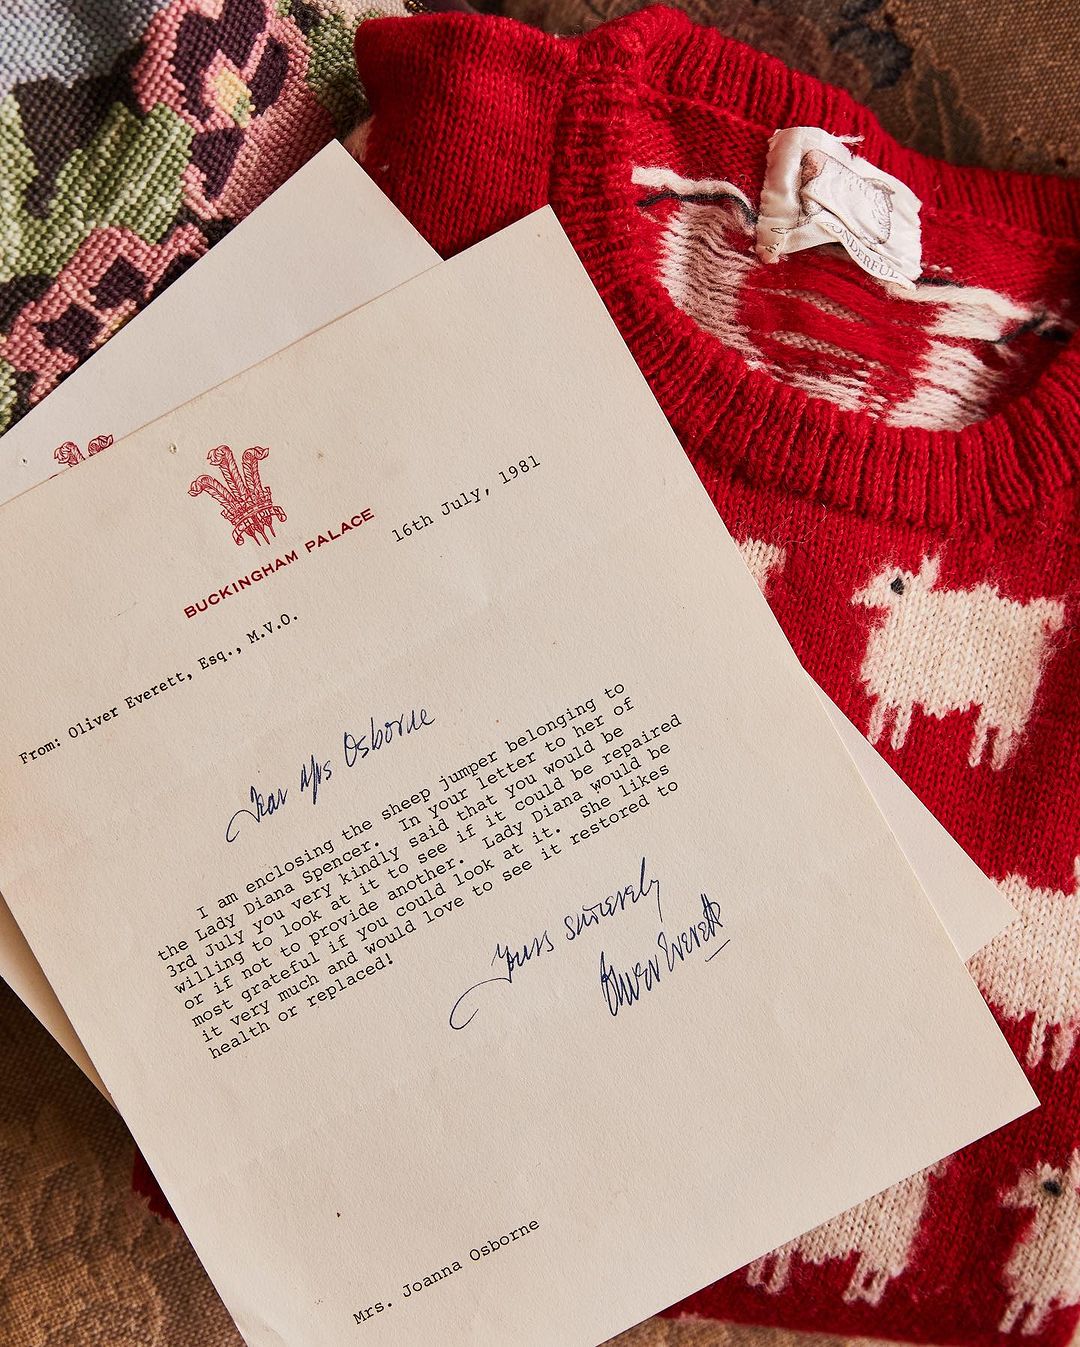 WONDERFUL
BUCKINGHAM PALACE
16th July, 1981
From: Oliver Everett, Esq., M.V.O.
Dear Mrs Osborne
I am enclosing the sheep jumper belonging to
the Lady Diana Spencer. In your letter to her of
3rd July you very kindly said that you would be
willing to look at it to see if it could be repaired
or if not to provide another. Lady Diana would be
most grateful if you could look at it. She likes
it very much and would love to see it restored to
health or replaced!
Yours sincerely
Oliver Everett
Mrs. Joanna Osborne